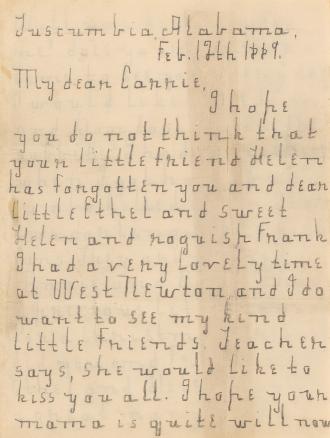 Tuscumbia, Alabama,
Feb. 12th 1889.
My dear Carrie,
I hope
you do not think that
your little friend Helen
has forgotten you and dear
little Ethel and sweet
Helen and roguish Frank
I had a very lovely time
at West Newton, and I do
want to see my kind
little friends. Teacher
says, she would like to
kiss you all. I hope your
mama is quite will now